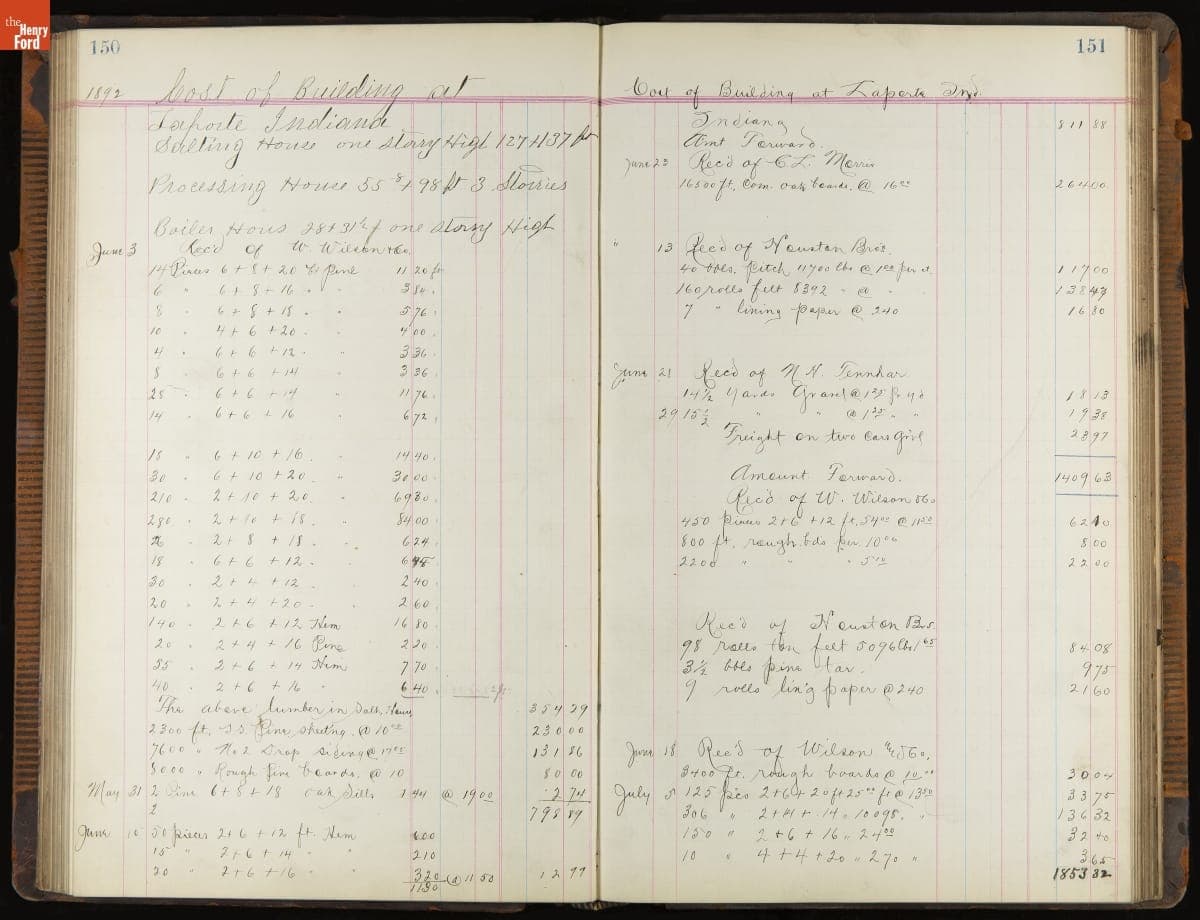 the Henry Ford
150
1892 Cost of Building at
Laporte Indiana
Salting House one storry High 127+137 ft
Processing House 55-8+98 ft 3 Storries
Boiler Hous 28+31½ f one storry High
June 3 Rec'd of W. Wilson & Co.
14 Pieces 6+8+20 ft pine 11 20 ft
6 " 6+8+16 " " 384.
8 " 6+8+18 . " 576.
10 " 4+6+20 - " 400.
4 . 6+6+12 - " 336.
8 . 6+6+14 " 336.
28 - 6+6+14 " 1176.
14 " 6+6+16 " 672.
18 " 6+10+16. " 1440.
30 " 6+10+20. " 3000.
210 - 2+10+20. " 6930.
280 . 2+10+18. " 8400
26 . 2+8+18. . 624.
18 . 6+6+12 - .
30 . 2+4+12. . 240.
20 . 2+4+20 - . 260.
140 . 2+6+12 Hem 1680.
20 . 2+4+16 Pine 220.
55 . 2+6+14 Hem 770.
40 . 2+6+16 " 640.
The above lumber in Salt. House 354 29
2300 ft. S.S. Pine sheeting. @ 10 00 230 00
7600 " No 2 Drop siding @ 17 00 131 86
8000 " Rough Pine boards. @ 10 80 00
May 31 2 Pine 6+8+18 oak Sills 144 @ 19 00 2 74
2 798 89
June 10 50 pieces 2+6+12 ft. Hem 600
15 " 2+6+14 " " 210
20 " 2+6+16 " " 320
1130 @ 11 50 12 99
151
Cost of Building at Laporte Ind.
Indiana 811 88
Amt Forward.
June 23 Rec'd of C. L. Morris
16500 ft. Com. oak boards. @ 16 00 264 00
" 13 Rec'd of Houston Bros.
40 bbls. Pitch 11700 lbs @ 1 00 per c 117 00
160 rolls felt 8392 " @ " 138 47
7 " lining paper @ 240 16 80
June 21 Rec'd of N. H. Tennhar
14½ Yards Gravel @ 1 25 pr yd 18 13
29 15½ " " @ 1 25 " " 19 38
Freight on two Cars Grvl 23 97
Amount Forward. 1409 63
Rec'd of W. Wilson & Co
450 pieces 2+6+12 ft. 5400 @ 11 50 62 10
800 ft. rough bds per. 10 00 8 00
2200 " " " 22 00
Rec'd of Houston Bros.
98 rolls tan felt 5096 lbs 1 65 84 08
3½ bbls pine tar 9 75
9 rolls lin'g paper @ 240 21 60
June 18 Rec'd of Wilson & Co.
3400 ft. rough boards @ 10.00 30 04
July 5 125 pcs 2+6+20 ft 2500 ft @ 13 50 33 75
306 " 2+ +14 " 10098. " 136 32
150 " 2+6+16 " 2400 32 40
10 " 4+4+20 " 270 " 3 65
1853 32